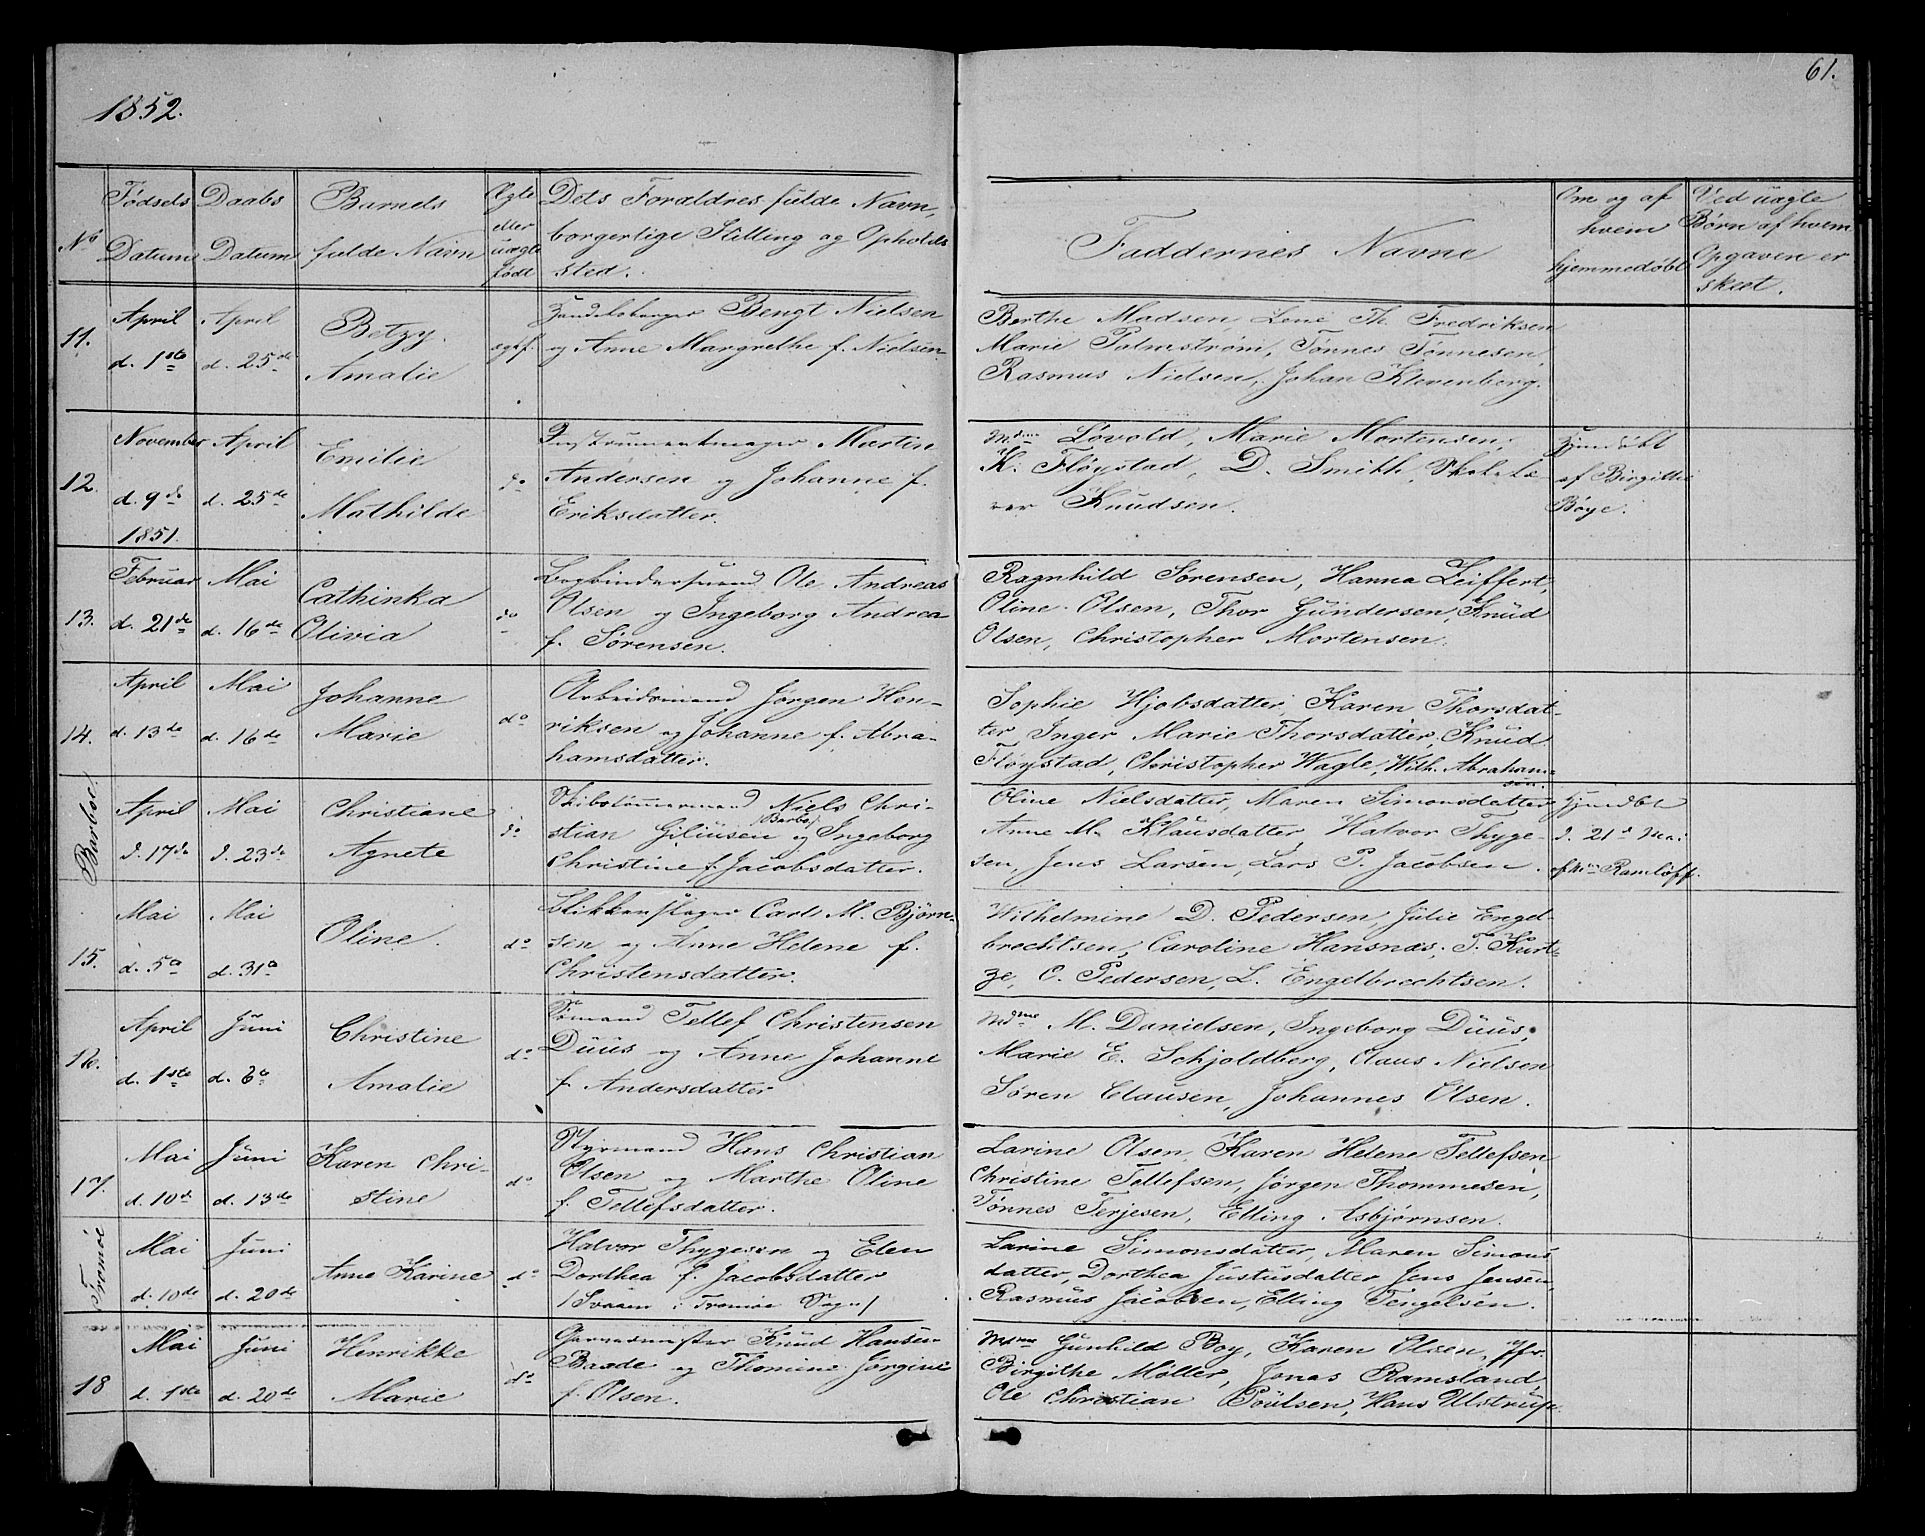 61.
1852.
No
Fødsels
Datum
Daabs
Datum
Barnets
fulde Navn
Ægte
eller
uægte
født
Dets Forældres fulde Navn,
borgerlige Stilling og Opholds
sted.
Faddernes Navne
Om og af
hvem
hjemmedøbt
Ved uægte
Børn af hvem
Opgaven er
skeet.
11.
April
d. 1ste
April
d. 25de
Betzy
Amalie
ægtef.
Bengt Nielsen
og Anne Margrethe f. Nielsen
Berthe Madsen, Lene Th. Fredriksen
Marie Palmstrøm, Tønnes Tønnesen,
Rasmus Nielsen, Johan Klevenberg.
12.
November
d. 9de
1851.
April
d. 25de
Emilie
Mathilde
do
Instrumentmager Martin
Andersen og Johanne f.
Eriksdatter.
Mdme Løvold, Marie Mortensen,
K. Fløystad, D. Smith,
Knudsen.
Hjemdøbt
af Birgitte
Bøye.
13.
Februar
d. 21de
Mai
d. 16de
Cathinka
Olivia
do
Bogbindersvend Ole Andreas
Olsen og Ingeborg Andrea
f. Sørensen.
Ragnhild Sørensen, Hanna Zeiffert,
Oline Olsen, Thor Gundersen, Knud
Olsen, Christopher Mortensen.
14.
April
d. 13de
Mai
d. 16de
Johanne
Marie
do
Arbeidsmand Jørgen Hen-
riksen og Johanne f. Abra-
hamsdatter.
Sophie Hjobsdatter, Karen Thorsdat-
ter, Inger Marie Thorsdatter, Knud
Fløystad, Christopher Wagle, Wilh. Abraham-
sen.
Barboe
April
d. 17de
Mai
d. 23de
Christiane
Agnete
do
Skibstømmermand Niels Chri-
/Barbo/
stian Giliusen og Ingeborg
Christine f. Jacobsdatter.
Oline Nielsdatter, Maren Simonsdatter
Anne M. Klausdatter, Halvor Thyge-
sen, Jens Larsen, Lars P. Jacobsen.
Hjemdøbt
d. 21de Mai
af Mdm Ramløff.
15.
Mai
d. 5te
Mai
d. 31te
Oline.
do
Blikkenslager Carl M. Bjørn-
sen og Anne Helene f.
Christensdatter.
Wilhelmine D. Pedersen, Julie Engel-
brechtsen, Caroline Hansnæs, T. Kurt-
ze, O. Pedersen, L. Engelbrechtsen.
16.
April
d. 1ste
Juni
d. 6te
Christine
Amalie
do
Sømand Tellef Christensen
Duus og Anne Johanne
f. Andersdatter
Mdme M. Danielsen, Ingeborg Duus,
Marie E. Schjoldberg, Claus Nielsen
Søren Clausen, Johannes Olsen.
17.
Mai
d. 10de
Juni
d. 13de
Karen Chri-
stine
do
Styrmand Hans Christian
Olsen og Marthe Oline
f. Tellefsdatter.
Larine Olsen, Karen Helene Tellefsen
Christine Tellefsen, Jørgen Thommesen,
Tønnes Terjesen, Elling Asbjørnsen.
Tromøe
Mai
d. 10de
Juni
d. 20de
Anne Karine
do
Halvor Thygesen og Elen
Dorthea f. Jacobsdatter
/Svaaen i Tromøe Sogn/
Larine Simonsdatter, Maren Simons
datter, Dorthea Justusdatter, Jens Jensen,
Rasmus Jacobsen, Elling Tengelsen.
18
Mai
d. 1ste
Juni
d. 20de
Henrikke
Marie
do
Garvermester Knud Hansen
Baade og Thomine Jørgine
f. Olsen.
Mdme Gunhild Boy, Karen Olsen, Jfr.
Birgithe Møller, Jonas Ramsland,
Ole Christian Poulsen, Hans Ulstrup.